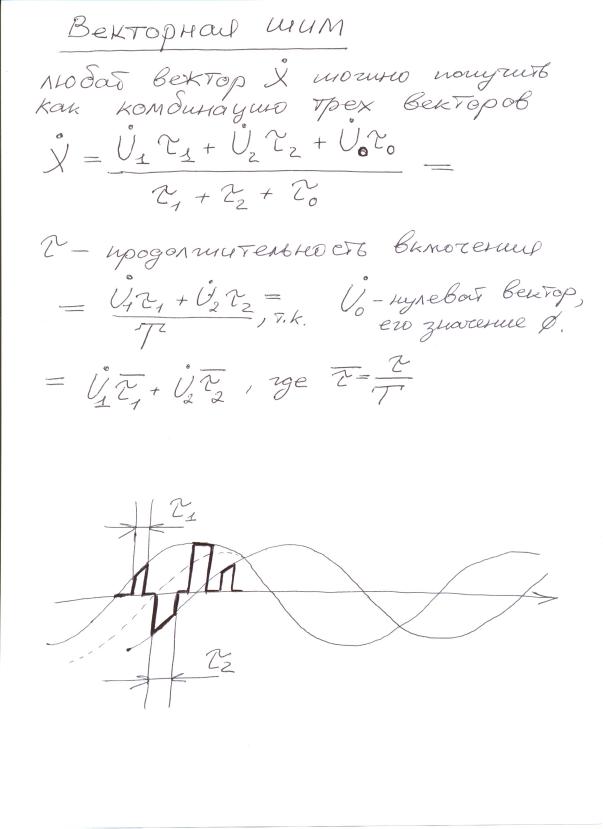 Векторная шим
любой вектор Ẋ можно получить
как комбинацию трех векторов
Ẋ = (U̇₁τ₁ + U̇₂τ₂ + U̇₀τ₀) / (τ₁ + τ₂ + τ₀) =
τ – продолжительность включения
= (U̇₁τ₁ + U̇₂τ₂) / T =, т.к. U̇₀ – нулевой вектор,
его значение ∅.
= U̇₁τ̅₁ + U̇₂τ̅₂, где τ̅ = τ/T
τ₁
τ₂